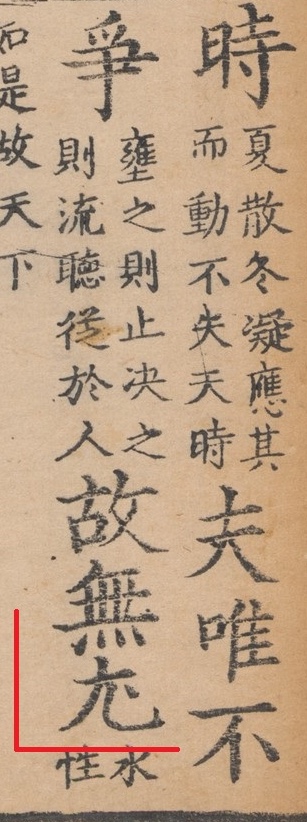 時
夏散冬凝應其
而動不失天時
夫唯不
爭
壅之則止决之
則流聽從於人
故無尤
水
性
如是故天下